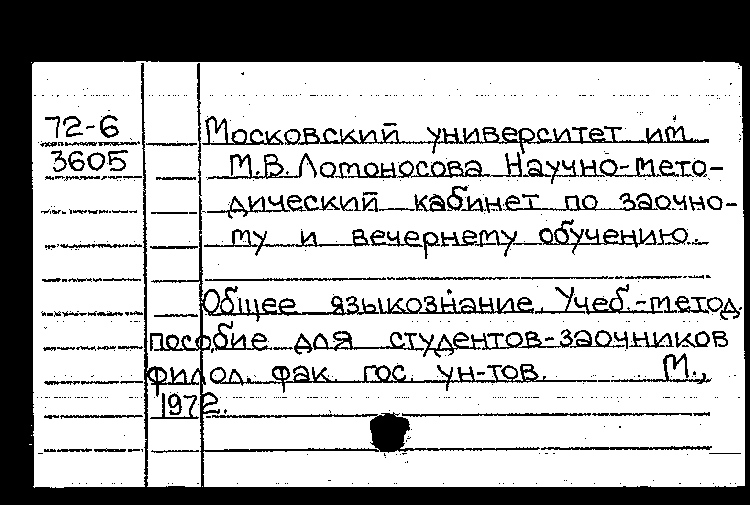 72-6 Московский университет им.
3605 М.В. Ломоносова Научно-мето-
дический кабинет по заочно-
му и вечернему обучению.
Общее языкознание. Учеб.-метод.
пособие для студентов-заочников
филол. фак. гос. ун-тов. М.,
1972.